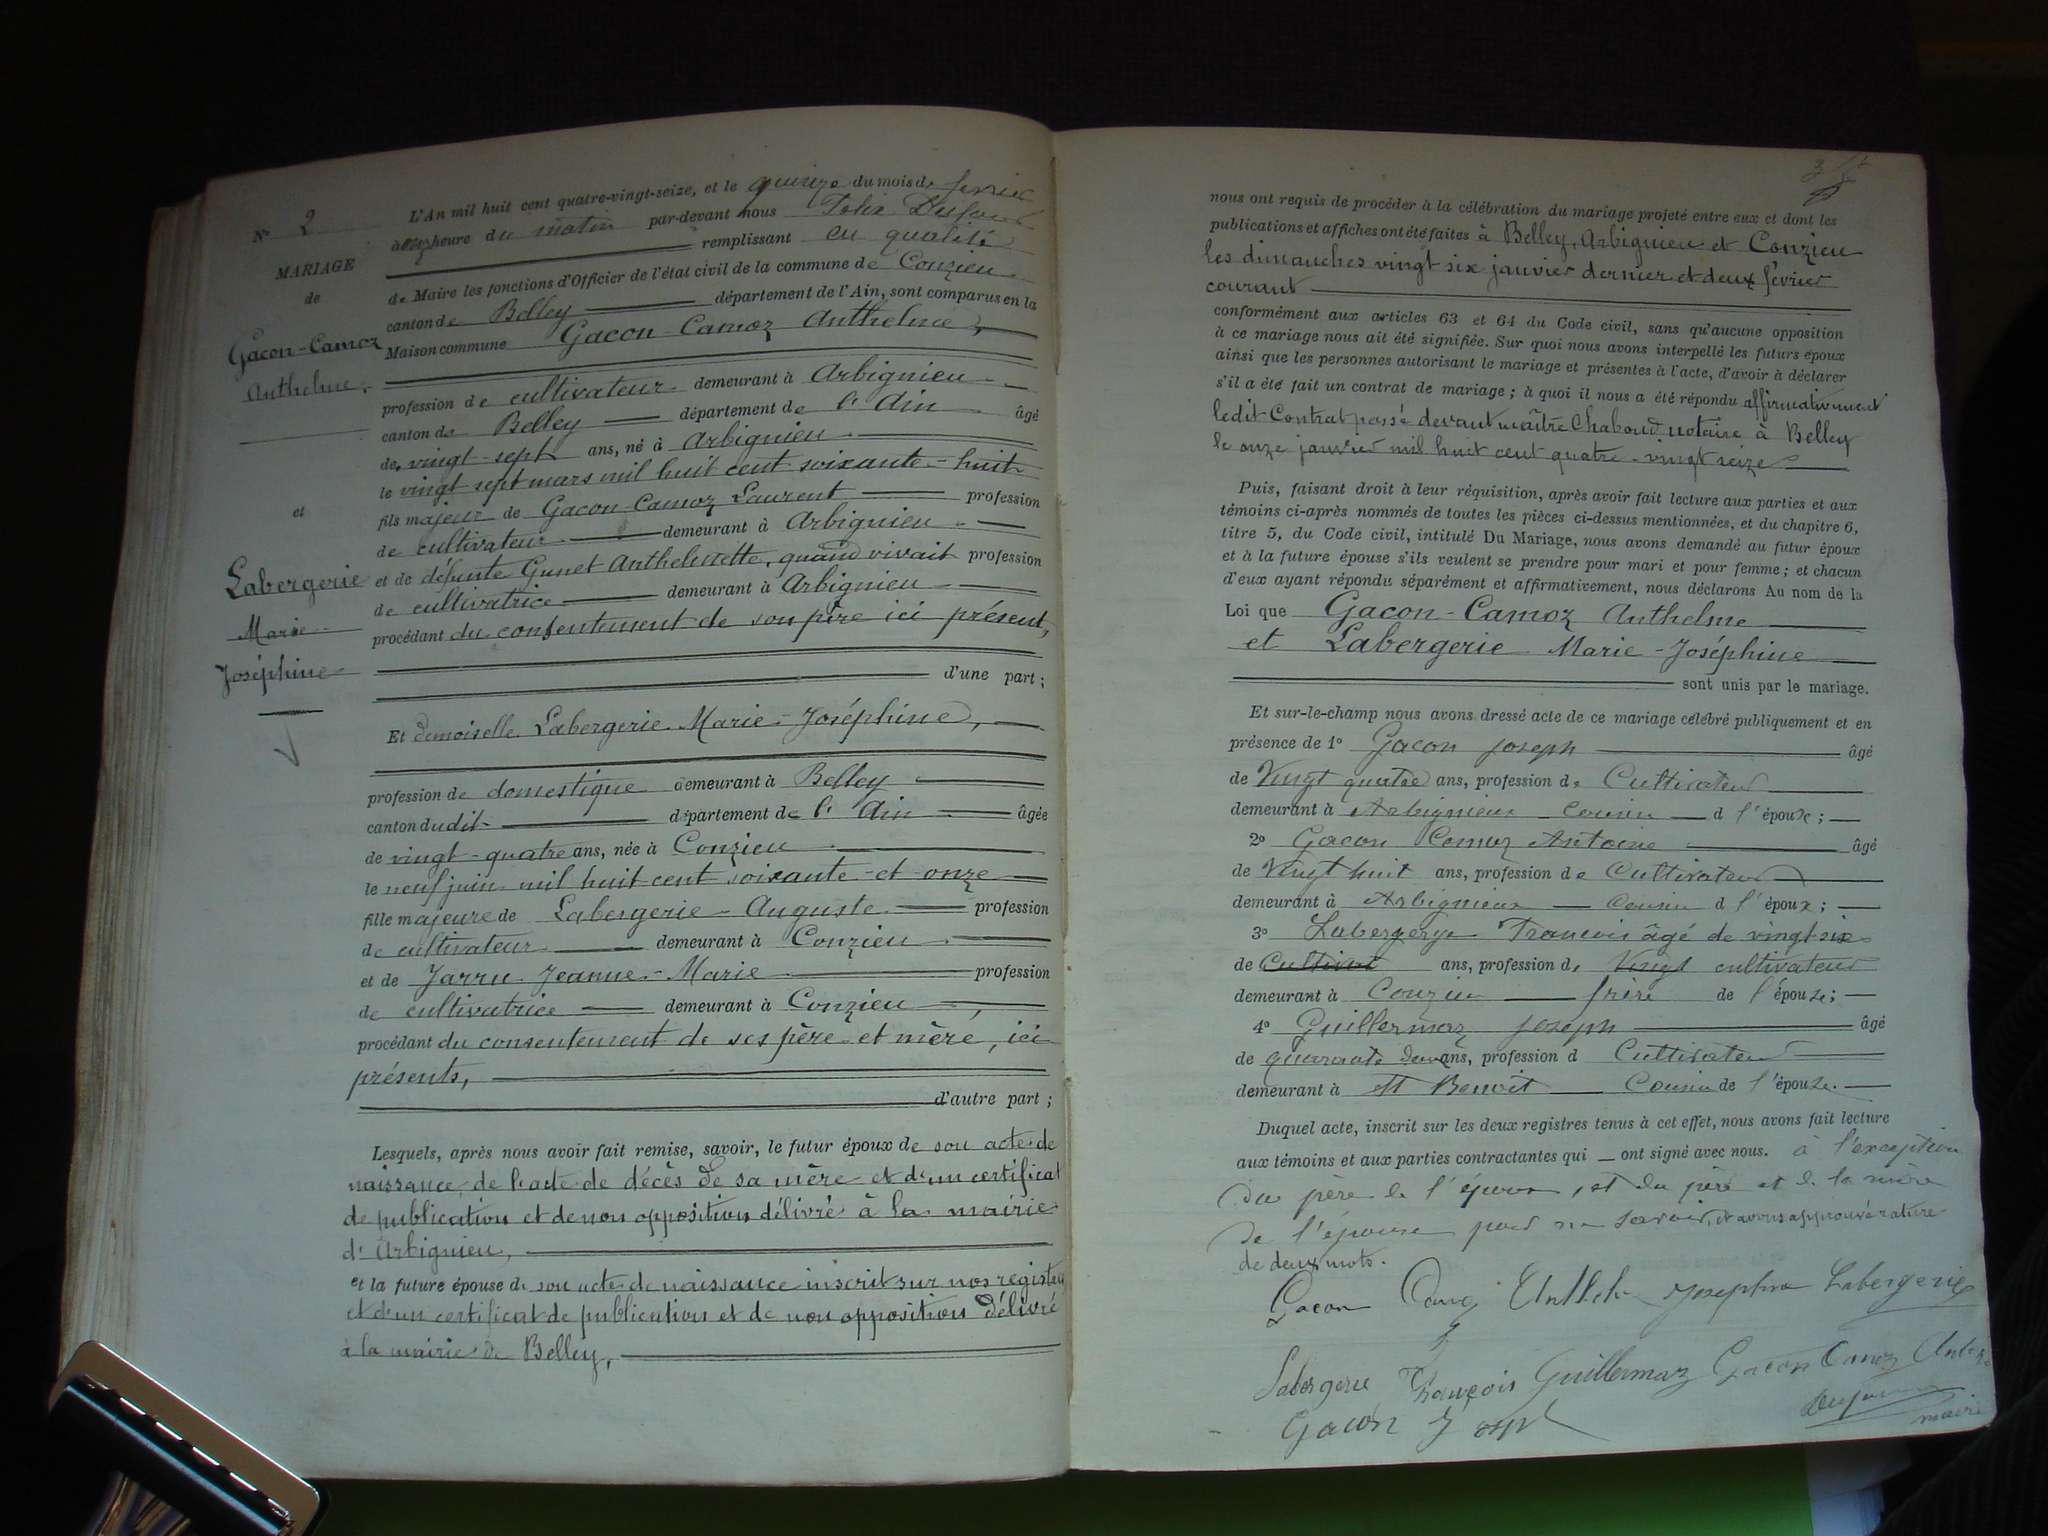 N° 2
MARIAGE
de
Gacon-Camoz
Anthelme.
et
Labergerie
Marie
Joséphine
L'An mil huit cent quatre-vingt-seize, et le quinze du mois de février
à onze heure du matin par-devant nous Félix Dufour
remplissant en qualité
de Maire les fonctions d'Officier de l'état civil de la commune de Conzieu
canton de Belley département de l'Ain, sont comparus en la
Maison commune Gacon-Camoz Anthelme,
profession de cultivateur demeurant à Arbignieu
canton de Belley département de l'Ain âgé
de vingt-sept ans, né à Arbignieu
le vingt sept mars mil huit cent soixante-huit
fils majeur de Gacon-Camoz Laurent profession
de cultivateur demeurant à Arbignieu
et de défunte Gunet Anthelmette, quand vivait profession
de cultivatrice demeurant à Arbignieu
procédant du consentement de son père ici présent,
d'une part ;
Et demoiselle Labergerie Marie-Joséphine,
profession de domestique demeurant à Belley
canton dudit département de l'Ain âgée
de vingt-quatre ans, née à Conzieu
le neuf juin mil huit cent soixante-et-onze
fille majeure de Labergerie Auguste profession
de cultivateur demeurant à Conzieu
et de Jarru Jeanne-Marie profession
de cultivatrice demeurant à Conzieu,
procédant du consentement de ses père et mère, ici
présents,
d'autre part ;
Lesquels, après nous avoir fait remise, savoir, le futur époux de son acte de
naissance, de l'acte de décès de sa mère et d'un certificat
de publication et de non opposition délivré à la mairie
d'Arbignieu,
et la future épouse de son acte de naissance inscrit sur nos registres
et d'un certificat de publication et de non opposition délivré
à la mairie de Belley,
nous ont requis de procéder à la célébration du mariage projeté entre eux et dont les
publications et affiches ont été faites à Belley, Arbignieu et Conzieu
les dimanches vingt six janvier dernier et deux février
courant
conformément aux articles 63 et 64 du Code civil, sans qu'aucune opposition
à ce mariage nous ait été signifiée. Sur quoi nous avons interpellé les futurs époux
ainsi que les personnes autorisant le mariage et présentes à l'acte, d'avoir à déclarer
s'il a été fait un contrat de mariage ; à quoi il nous a été répondu affirmativement
ledit Contrat passé devant maître Chaboud notaire à Belley
le onze janvier mil huit cent quatre-vingt seize
Puis, faisant droit à leur réquisition, après avoir fait lecture aux parties et aux
témoins ci-après nommés de toutes les pièces ci-dessus mentionnées, et du chapitre 6,
titre 5, du Code civil, intitulé Du Mariage, nous avons demandé au futur époux
et à la future épouse s'ils veulent se prendre pour mari et pour femme ; et chacun
d'eux ayant répondu séparément et affirmativement, nous déclarons Au nom de la
Loi que Gacon-Camoz Anthelme
et Labergerie Marie-Joséphine
sont unis par le mariage.
Et sur-le-champ nous avons dressé acte de ce mariage célébré publiquement et en
présence de 1° Gacon Joseph âgé
de Vingt quatre ans, profession de Cultivateur
demeurant à Arbignieux cousin d l'époux ;
2° Gacon Camoz Antoine âgé
de Vingt huit ans, profession de Cultivateur
demeurant à Arbignieux cousin d l'époux ;
3° Labergerye Francois âgé de vingt-six
de Cultivat ans, profession de Vingt cultivateur
demeurant à Conzieu frère de l'épouse ;
4° Guillermaz Joseph âgé
de quarante deux ans, profession d Cultivateur
demeurant à St Benoit Cousin de l'épouse.
Duquel acte, inscrit sur les deux registres tenus à cet effet, nous avons fait lecture
aux témoins et aux parties contractantes qui ont signé avec nous. à l'exception
du père de l'époux, et du père et de la mère
de l'épouse pour ne savoir, et avons approuvé rature
de deux mots.
Gacon Camoz Anthelme Josephine Labergerie
Labergerie François Guillermaz Gacon Camoz
Dufour
maire
Gacon Joseph